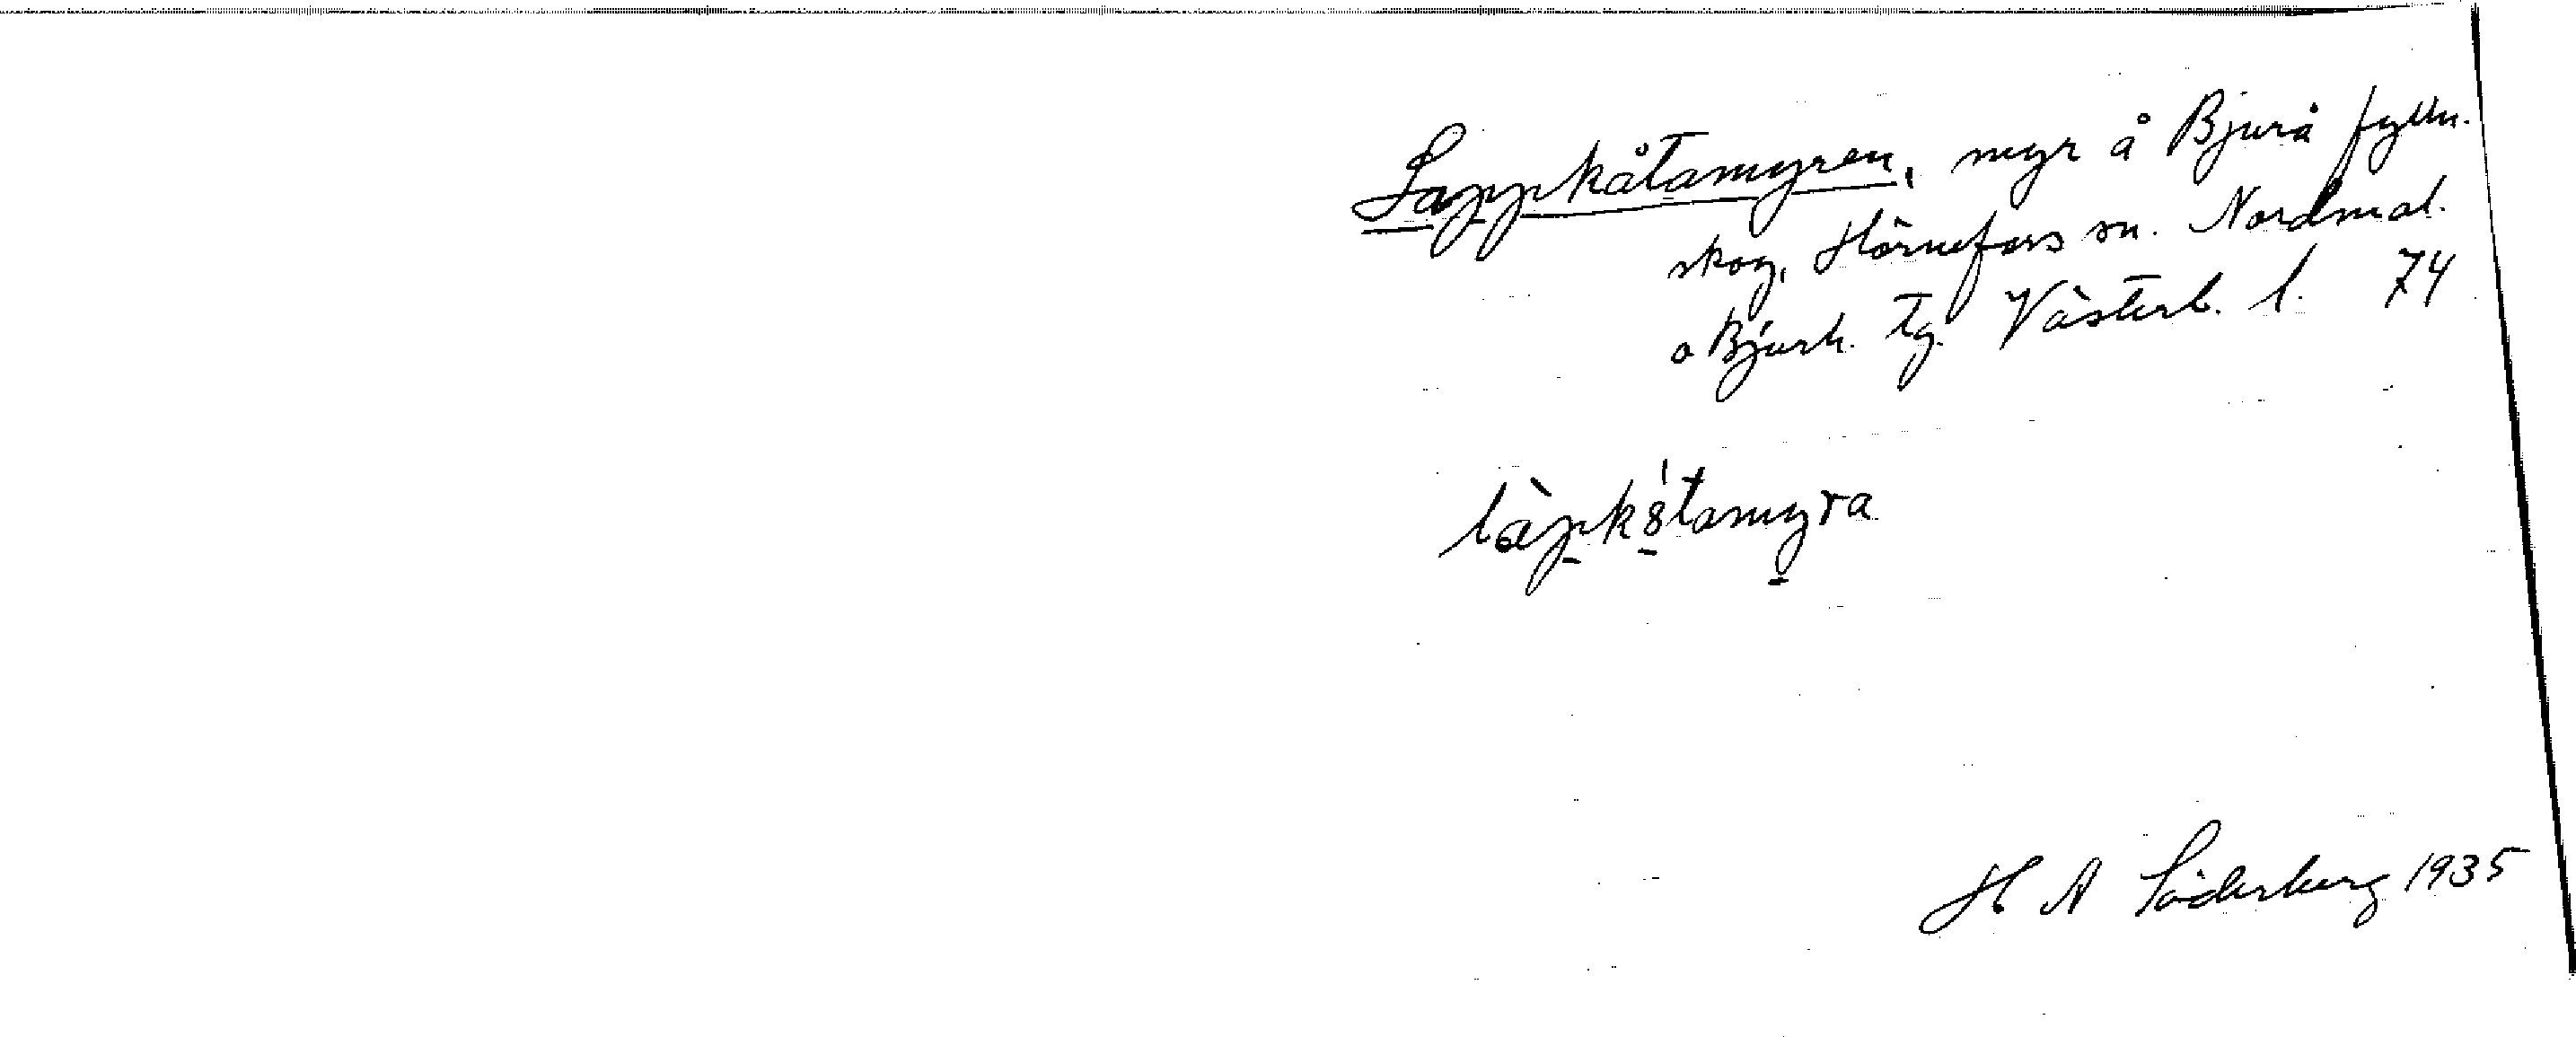 Lappkåtamyren, myr å Bjurå fylln.
skog, Hörnefors sn. Nordmal.
o Bjurh. tg. Västerb. l. 74
làpk8́tamyra
H A Söderberg 1935